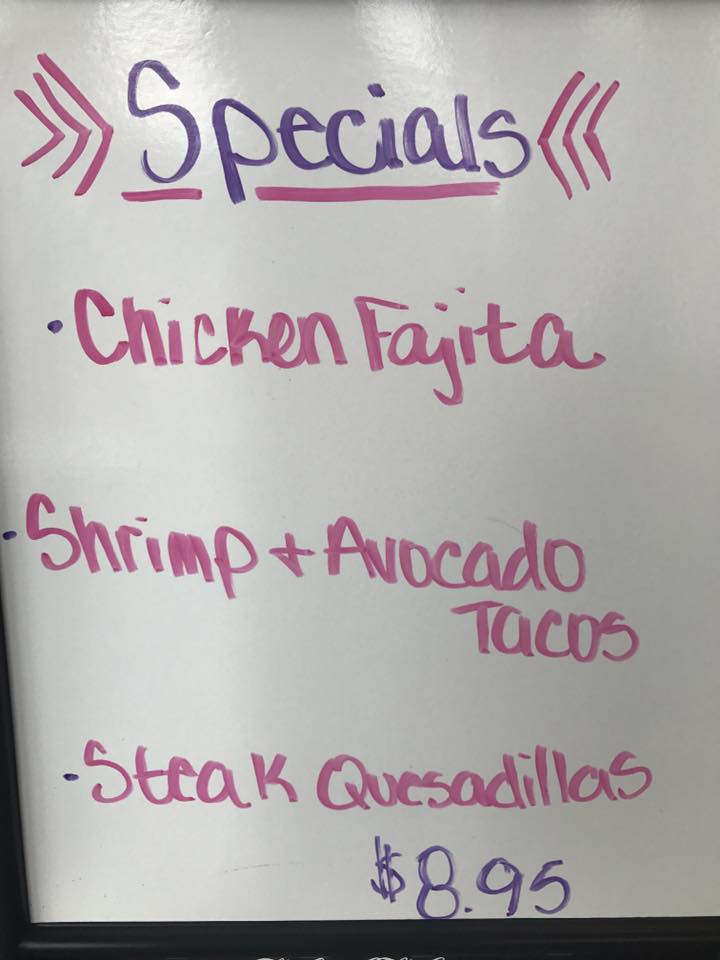 Specials
· Chicken Fajita
· Shrimp + Avocado
Tacos
· Steak Quesadillas
$8.95